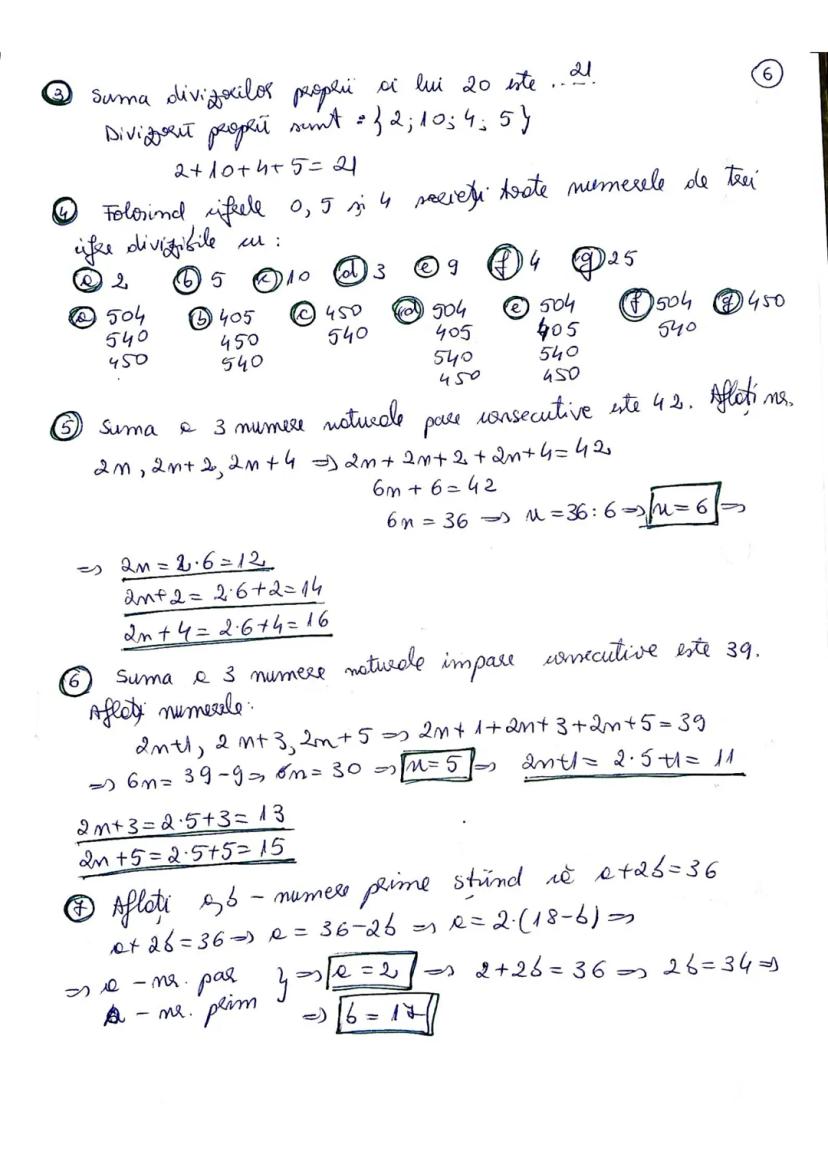 6
3 Suma divizorilor proprii ai lui 20 este ..21..
Divizorii proprii sunt = {2; 10; 4; 5}
2+10+4+5=21
4 Folosind cifrele 0, 5 și 4 scrieți toate numerele de trei
cifre divizibile cu:
a 2 b 5 c 10 d 3 e 9 f 4 g 25
a 504 b 405 c 450 d 504 e 504 f 504 g 450
540 450 540 405 405 540
450 540 540 540
450 450
5 Suma a 3 numere naturale pare consecutive este 42. Aflați nr.
2n, 2n+2, 2n+4 => 2n+2n+2+2n+4=42
6n+6=42
6n=36 => n=36:6 => n=6 =>
=> 2n=2·6=12
2n+2=2·6+2=14
2n+4=2·6+4=16
6 Suma a 3 numere naturale impare consecutive este 39.
Aflați numerele:
2n+1, 2n+3, 2n+5 => 2n+1+2n+3+2n+5=39
=> 6n=39-9 => 6n=30 => n=5 => 2n+1=2·5+1=11
2n+3=2·5+3=13
2n+5=2·5+5=15
7 Aflați a,b - numere prime știind că a+2b=36
a+2b=36 => a=36-2b => a=2·(18-b) =>
=> a - nr. par } => a=2 => 2+2b=36 => 2b=34 =>
a - nr. prim => b=17